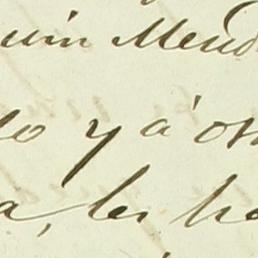 uin Mend
lo y á ot
a, les ha